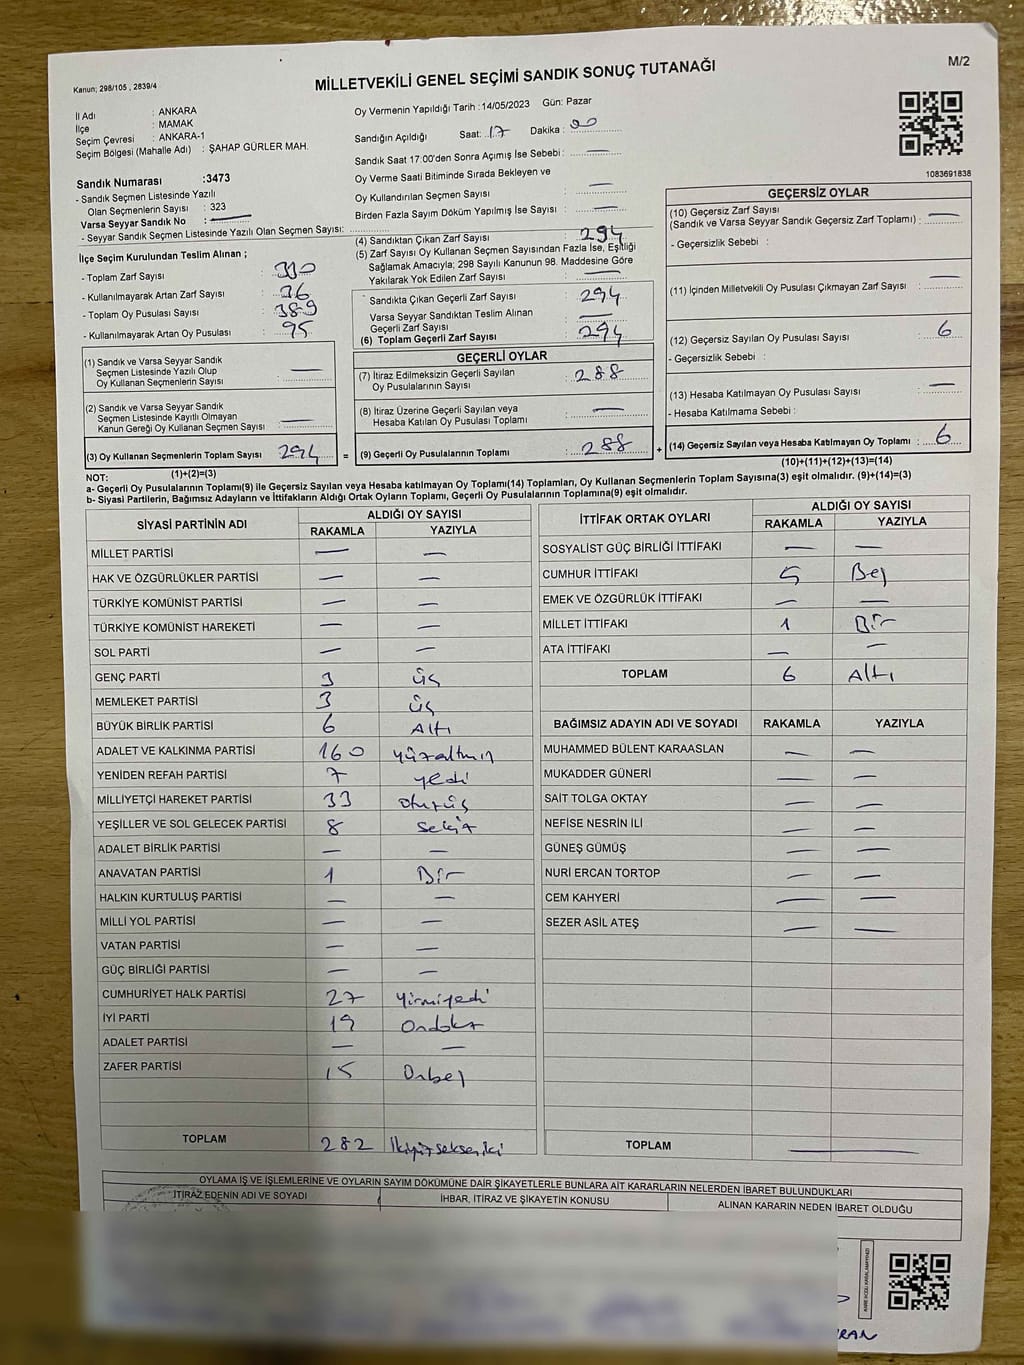 M/2
Kanun; 298/105 , 2839/4
MİLLETVEKİLİ GENEL SEÇİMİ SANDIK SONUÇ TUTANAĞI
İl Adı : ANKARA
İlçe : MAMAK
Seçim Çevresi : ANKARA-1
Seçim Bölgesi (Mahalle Adı) : ŞAHAP GÜRLER MAH.
Sandık Numarası :3473
- Sandık Seçmen Listesinde Yazılı
Olan Seçmenlerin Sayısı : 323
Varsa Seyyar Sandık No : —
- Seyyar Sandık Seçmen Listesinde Yazılı Olan Seçmen Sayısı:
Oy Vermenin Yapıldığı Tarih :14/05/2023 Gün: Pazar
Sandığın Açıldığı Saat: 17 Dakika : 00
Sandık Saat 17:00'den Sonra Açımış İse Sebebi: —
Oy Verme Saati Bitiminde Sırada Bekleyen ve
Oy Kullandırılan Seçmen Sayısı : —
Birden Fazla Sayım Döküm Yapılmış İse Sayısı : —
1083691838
İlçe Seçim Kurulundan Teslim Alınan ;
- Toplam Zarf Sayısı : 330
- Kullanılmayarak Artan Zarf Sayısı : 36
- Toplam Oy Pusulası Sayısı : 389
- Kullanılmayarak Artan Oy Pusulası : 95
(1) Sandık ve Varsa Seyyar Sandık
Seçmen Listesinde Yazılı Olup
Oy Kullanan Seçmenlerin Sayısı : —
(2) Sandık ve Varsa Seyyar Sandık
Seçmen Listesinde Kayıtlı Olmayan
Kanun Gereği Oy Kullanan Seçmen Sayısı : —
(3) Oy Kullanan Seçmenlerin Toplam Sayısı 294
(1)+(2)=(3)
(4) Sandıktan Çıkan Zarf Sayısı : 294
(5) Zarf Sayısı Oy Kullanan Seçmen Sayısından Fazla İse, Eşitliği
Sağlamak Amacıyla; 298 Sayılı Kanunun 98. Maddesine Göre
Yakılarak Yok Edilen Zarf Sayısı : —
Sandıkta Çıkan Geçerli Zarf Sayısı : 294
Varsa Seyyar Sandıktan Teslim Alınan
Geçerli Zarf Sayısı : —
(6) Toplam Geçerli Zarf Sayısı : 294
GEÇERLİ OYLAR
(7) İtiraz Edilmeksizin Geçerli Sayılan
Oy Pusulalarının Sayısı : 288
(8) İtiraz Üzerine Geçerli Sayılan veya
Hesaba Katılan Oy Pusulası Toplamı : —
= (9) Geçerli Oy Pusulalarının Toplamı : 288
GEÇERSİZ OYLAR
(10) Geçersiz Zarf Sayısı
(Sandık ve Varsa Seyyar Sandık Geçersiz Zarf Toplamı) : —
- Geçersizlik Sebebi :
(11) İçinden Milletvekili Oy Pusulası Çıkmayan Zarf Sayısı : —
(12) Geçersiz Sayılan Oy Pusulası Sayısı : 6
- Geçersizlik Sebebi :
(13) Hesaba Katılmayan Oy Pusulası Sayısı : —
- Hesaba Katılmama Sebebi :
+ (14) Geçersiz Sayılan veya Hesaba Katılmayan Oy Toplamı : 6
(10)+(11)+(12)+(13)=(14)
NOT:
a- Geçerli Oy Pusulalarının Toplamı(9) ile Geçersiz Sayılan veya Hesaba Katılmayan Oy Toplamı(14) Toplamları, Oy Kullanan Seçmenlerin Toplam Sayısına(3) eşit olmalıdır. (9)+(14)=(3)
b- Siyasi Partilerin, Bağımsız Adayların ve İttifakların Aldığı Ortak Oyların Toplamı, Geçerli Oy Pusulalarının Toplamına(9) eşit olmalıdır.
SİYASİ PARTİNİN ADI ALDIĞI OY SAYISI
RAKAMLA YAZIYLA
MİLLET PARTİSİ — —
HAK VE ÖZGÜRLÜKLER PARTİSİ — —
TÜRKİYE KOMÜNİST PARTİSİ — —
TÜRKİYE KOMÜNİST HAREKETİ — —
SOL PARTİ — —
GENÇ PARTİ 3 üç
MEMLEKET PARTİSİ 3 üç
BÜYÜK BİRLİK PARTİSİ 6 Altı
ADALET VE KALKINMA PARTİSİ 160 yüzaltmış
YENİDEN REFAH PARTİSİ 7 yedi
MİLLİYETÇİ HAREKET PARTİSİ 33 otuzüç
YEŞİLLER VE SOL GELECEK PARTİSİ 8 Sekiz
ADALET BİRLİK PARTİSİ — —
ANAVATAN PARTİSİ 1 Bir
HALKIN KURTULUŞ PARTİSİ — —
MİLLİ YOL PARTİSİ — —
VATAN PARTİSİ — —
GÜÇ BİRLİĞİ PARTİSİ — —
CUMHURİYET HALK PARTİSİ 27 yirmiyedi
İYİ PARTİ 19 Ondokuz
ADALET PARTİSİ — —
ZAFER PARTİSİ 15 Onbeş
TOPLAM 282 İkiyüzsekseniki
İTTİFAK ORTAK OYLARI ALDIĞI OY SAYISI
RAKAMLA YAZIYLA
SOSYALİST GÜÇ BİRLİĞİ İTTİFAKI — —
CUMHUR İTTİFAKI 5 Beş
EMEK VE ÖZGÜRLÜK İTTİFAKI — —
MİLLET İTTİFAKI 1 Bir
ATA İTTİFAKI — —
TOPLAM 6 Altı
BAĞIMSIZ ADAYIN ADI VE SOYADI RAKAMLA YAZIYLA
MUHAMMED BÜLENT KARAASLAN — —
MUKADDER GÜNERİ — —
SAİT TOLGA OKTAY — —
NEFİSE NESRİN İLİ — —
GÜNEŞ GÜMÜŞ — —
NURİ ERCAN TORTOP — —
CEM KAHYERİ — —
SEZER ASİL ATEŞ — —
TOPLAM —
OYLAMA İŞ VE İŞLEMLERİNE VE OYLARIN SAYIM DÖKÜMÜNE DAİR ŞİKAYETLERLE BUNLARA AİT KARARLARIN NELERDEN İBARET BULUNDUKLARI
İTİRAZ EDENİN ADI VE SOYADI İHBAR, İTİRAZ VE ŞİKAYETİN KONUSU ALINAN KARARIN NEDEN İBARET OLDUĞU